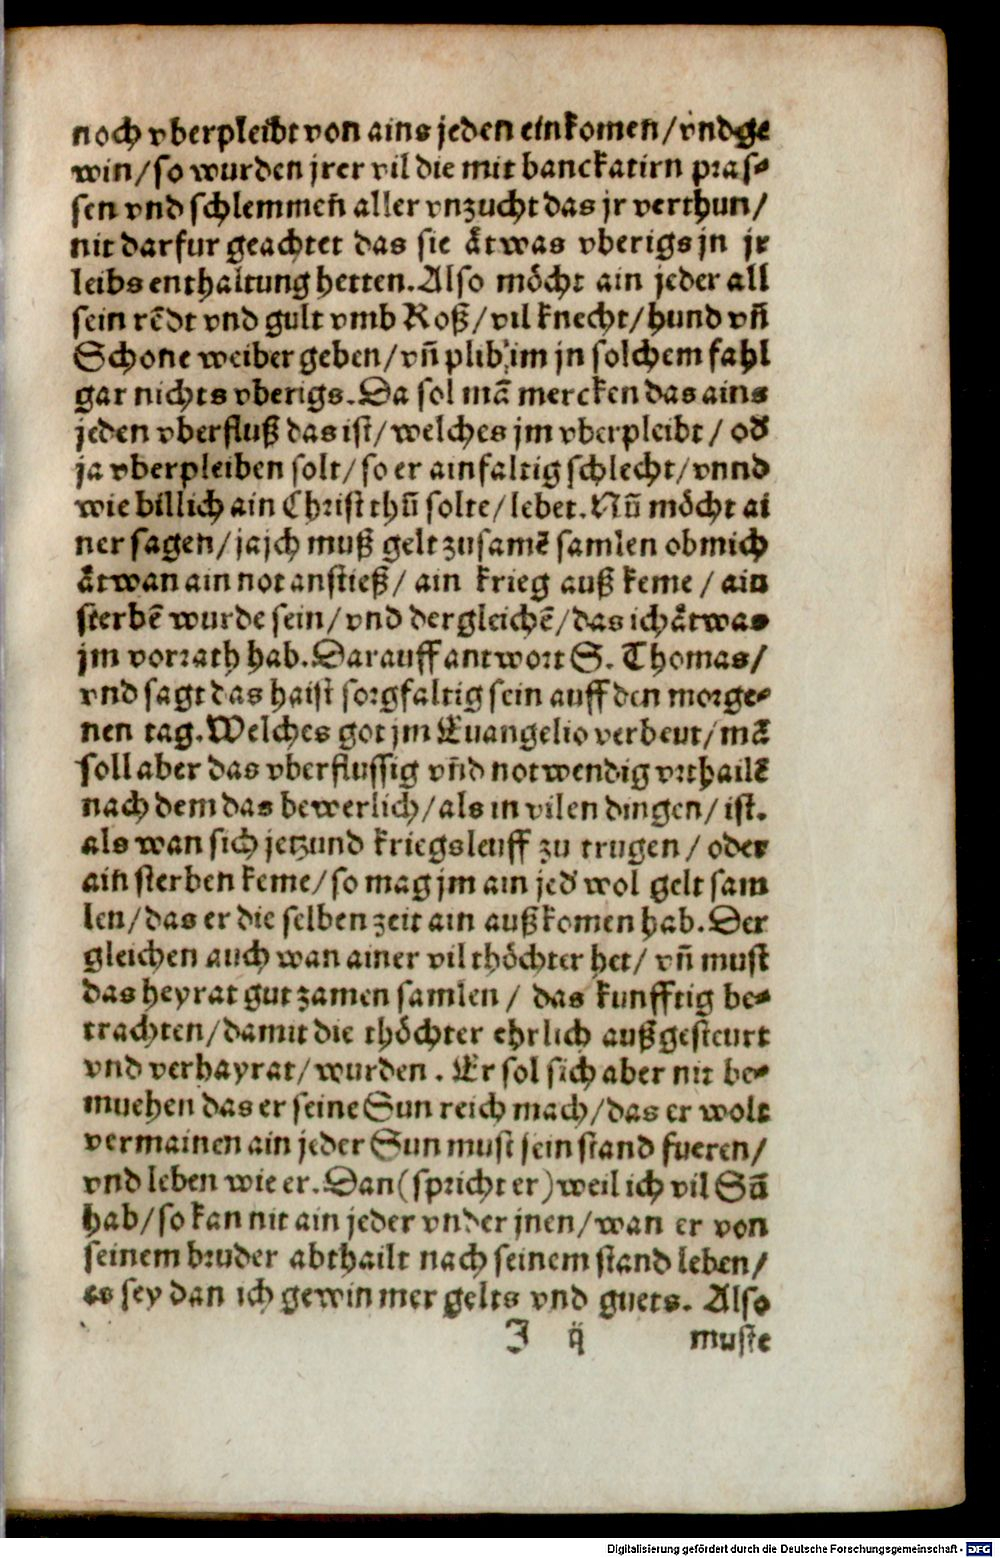 noch vberpleibt von ains jeden einkomen/vnd ge
win/so wurden jrer vil die mit banckatirn pras⸗
sen vnd schlemmeñ aller vnzucht das jr verthun/
nit darfur geachtet das sie åtwas vberigs jn jr
leibs enthaltung hetten. Also möcht ain jeder all
sein rẽdt vnd gult vmb Roß/vil knecht/hund vñ
Schone weiber geben/vñ plib im jn solchem fahl
gar nichts vberigs. Da sol mã mercken das ains
jeden vberfluß das ist/welches jm vberpleibt/ od̃
ja vberpleiben solt/so er ainfaltig schlecht/vnnd
wie billich ain Christ thũ solte/lebet. Nũ möcht ai
ner sagen/ja jch muß gelt zusamẽ samlen ob mich
åtwan ain not anstieß/ ain krieg auß keme/ ain
sterbẽ wurde sein/vnd dergleichẽ/das ich åtwas
jm vorrath hab. Darauff antwort S. Thomas/
vnd sagt das haist sorgfaltig sein auff den morge⸗
nen tag. Welches got jm Euangelio verbeut/mã
soll aber das vberflussig vñd notwendig vrthailẽ
nach dem das bewerlich/als in vilen dingen/ist.
als wan sich jetzund kriegsleuff zu trugen/oder
aiñ sterben keme/so mag jm ain jed̃ wol gelt sam
len/das er die selben zeit ain außkomen hab. Der
gleichen auch wan ainer vil thöchter het/ vñ must
das heyrat gut zamen samlen/ das kunfftig be⸗
trachten/damit die thöchter ehrlich außgesteurt
vnd verhayrat/wurden. Er sol sich aber nit be⸗
muehen das er seine Sun reich mach/das er wolt
vermainen ain jeder Sun must sein stand fueren/
vnd leben wie er. Dan(spricht er)weil ich vil Sũ
hab/so kan nit ain jeder vnder jnen/wan er von
seinem bruder abthailt nach seinem stand leben/
es sey dan ich gewin mer gelts vnd guets. Also
J ij muste
Digitalisierung gefördert durch die Deutsche Forschungsgemeinschaft - DFG